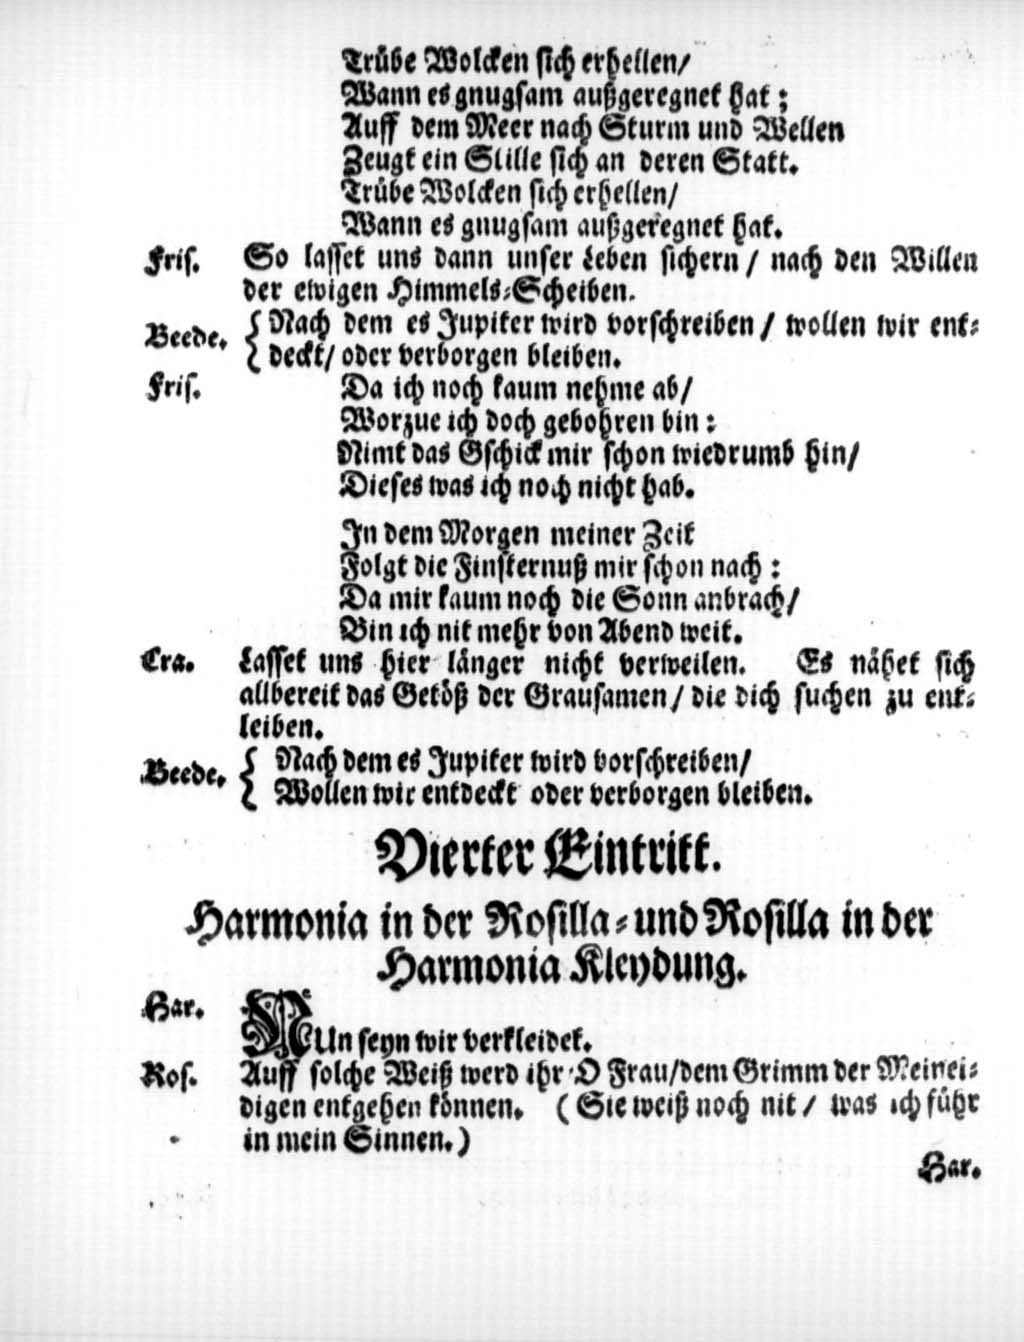 Trübe Wolcken sich erhellen/
Wann es gnugsam außgeregnet hat;
Auff dem Meer nach Sturm und Wellen
Zeugt ein Stille sich an deren Statt.
Trübe Wolcken sich erhellen/
Wann es gnugsam außgeregnet hat.
Fris. So lasset uns dann unser Leben sichern/ nach den Willen
der ewigen Himmels-Scheiben.
Beede. { Nach dem es Jupiter wird vorschreiben/ wollen wir ent-
deckt/ oder verborgen bleiben.
Fris. Da ich noch kaum nehme ab/
Worzue ich doch gebohren bin:
Nimt das Gschick mir schon wiedrumb hin/
Dieses was ich noch nicht hab.
In dem Morgen meiner Zeit
Folgt die Finsternuß mir schon nach:
Da mir kaum noch die Sonn anbrach/
Bin ich nit mehr von Abend weit.
Cra. Lasset uns hier länger nicht verweilen. Es nähet sich
allbereit das Getöß der Grausamen/ die dich suchen zu ent-
leiben.
Beede. { Nach dem es Jupiter wird vorschreiben/
Wollen wir entdeckt oder verborgen bleiben.
Vierter Eintritt.
Harmonia in der Rosilla- und Rosilla in der
Harmonia Kleydung.
Har. NUn seyn wir verkleidet.
Ros. Auff solche Weiß werd ihr O Frau/dem Grimm der Meinei-
digen entgehen können. (Sie weiß noch nit/ was ich führ
in mein Sinnen.)
Har.